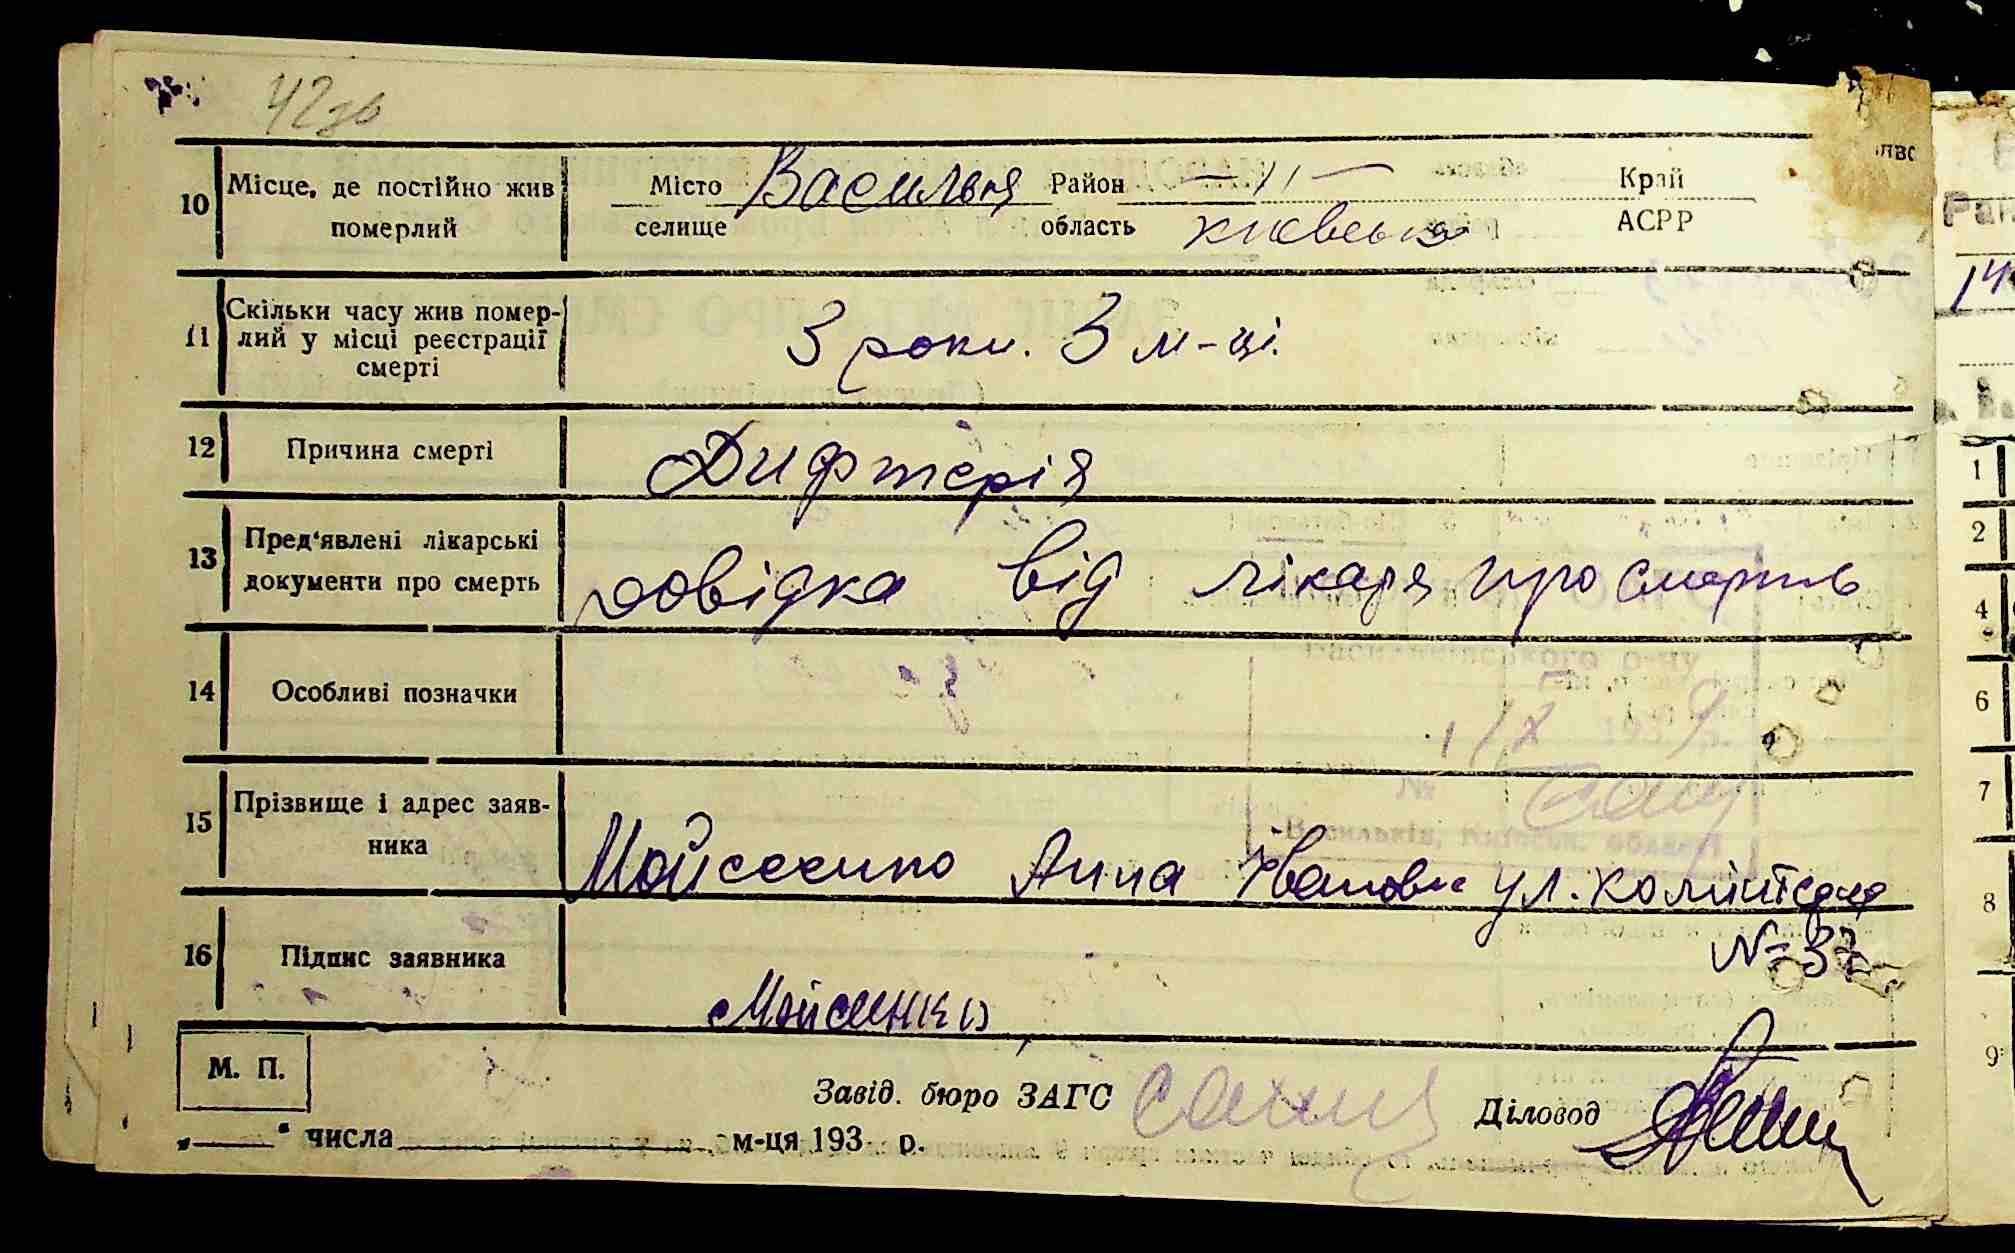 42зв
10 Місце, де постійно жив померлий
Місто Васильків Район —〃— Край
селище область київська АСРР
11 Скільки часу жив помер-
лий у місці реєстрації
смерті
3 роки. 3 м-ці.
12 Причина смерті Дифтерія
13 Пред'явлені лікарські
документи про смерть
Довідка від лікаря про смерть
14 Особливі позначки
15 Прізвище і адрес заяв-
ника
Мойсеенко Анна Ивановна ул. комінтерна
№ 37
16 Підпис заявника
Мойсинко
М. П.
Завід. бюро ЗАГС Діловод
„ " числа м-ця 193 р.
Ран
14
1
2
4
6
7
8
9